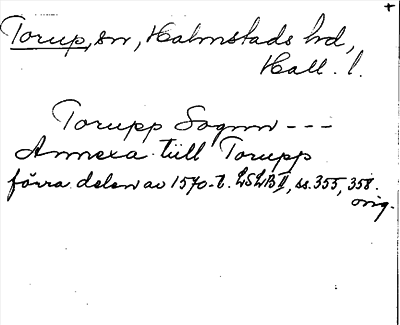 +
Torup, sn, Halmstads hd,
Hall. l.
Torupp Sognn ---
Annexa till Torupp
förra delen av 1570-t. LSLB II, ss. 355, 358.
orig.